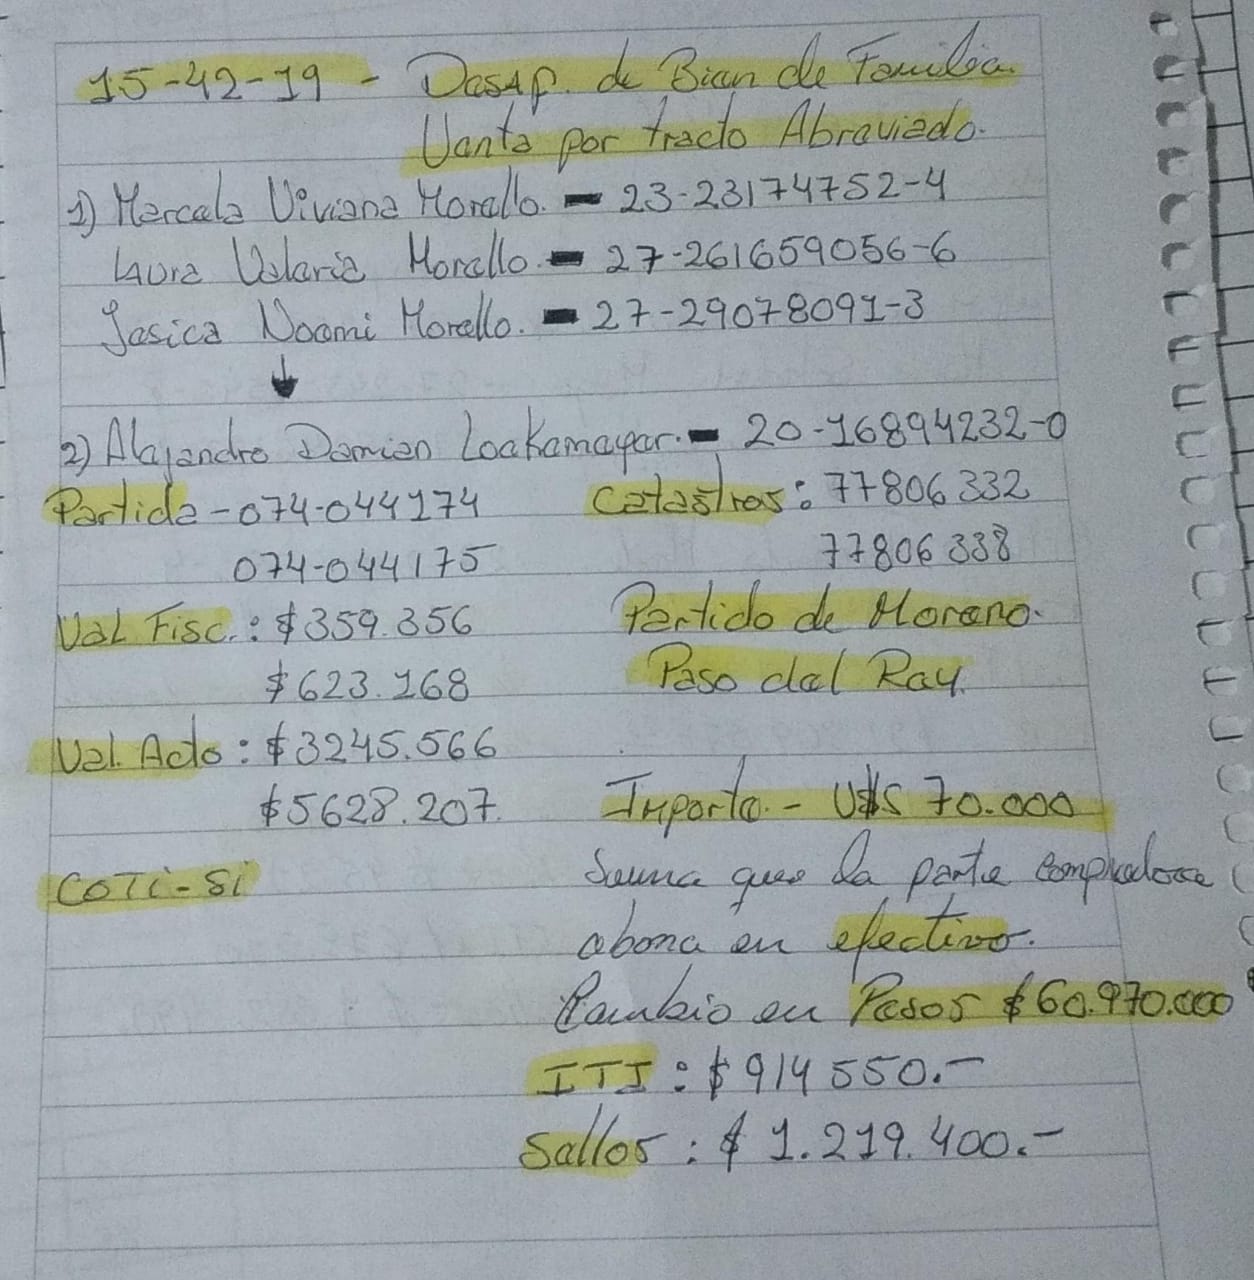 15-42-19 - Desaf. de Bien de Familia.
Venta por tracto Abreviado.
1) Marcela Viviana Morello. - 23-23174752-4
Laura Valeria Morello. - 27-261659056-6
Jesica Noemi Morello. - 27-29078091-3
↓
2) Alejandro Damian Loekemeyer. - 20-16894232-0
Partida - 074-044174 Catastros: 77806332
074-044175 77806338
Val Fisc.: $359.356 Partido de Moreno.
$623.168 Paso del Rey.
Val. Acto: $3245.566
$5628.207. Importe. - U$S 70.000
COTI-Si Suma que la parte compradora
abona en efectivo.
Cambio en Pesos $60.970.000
ITI: $914550.-
Sellos: $1.219.400.-